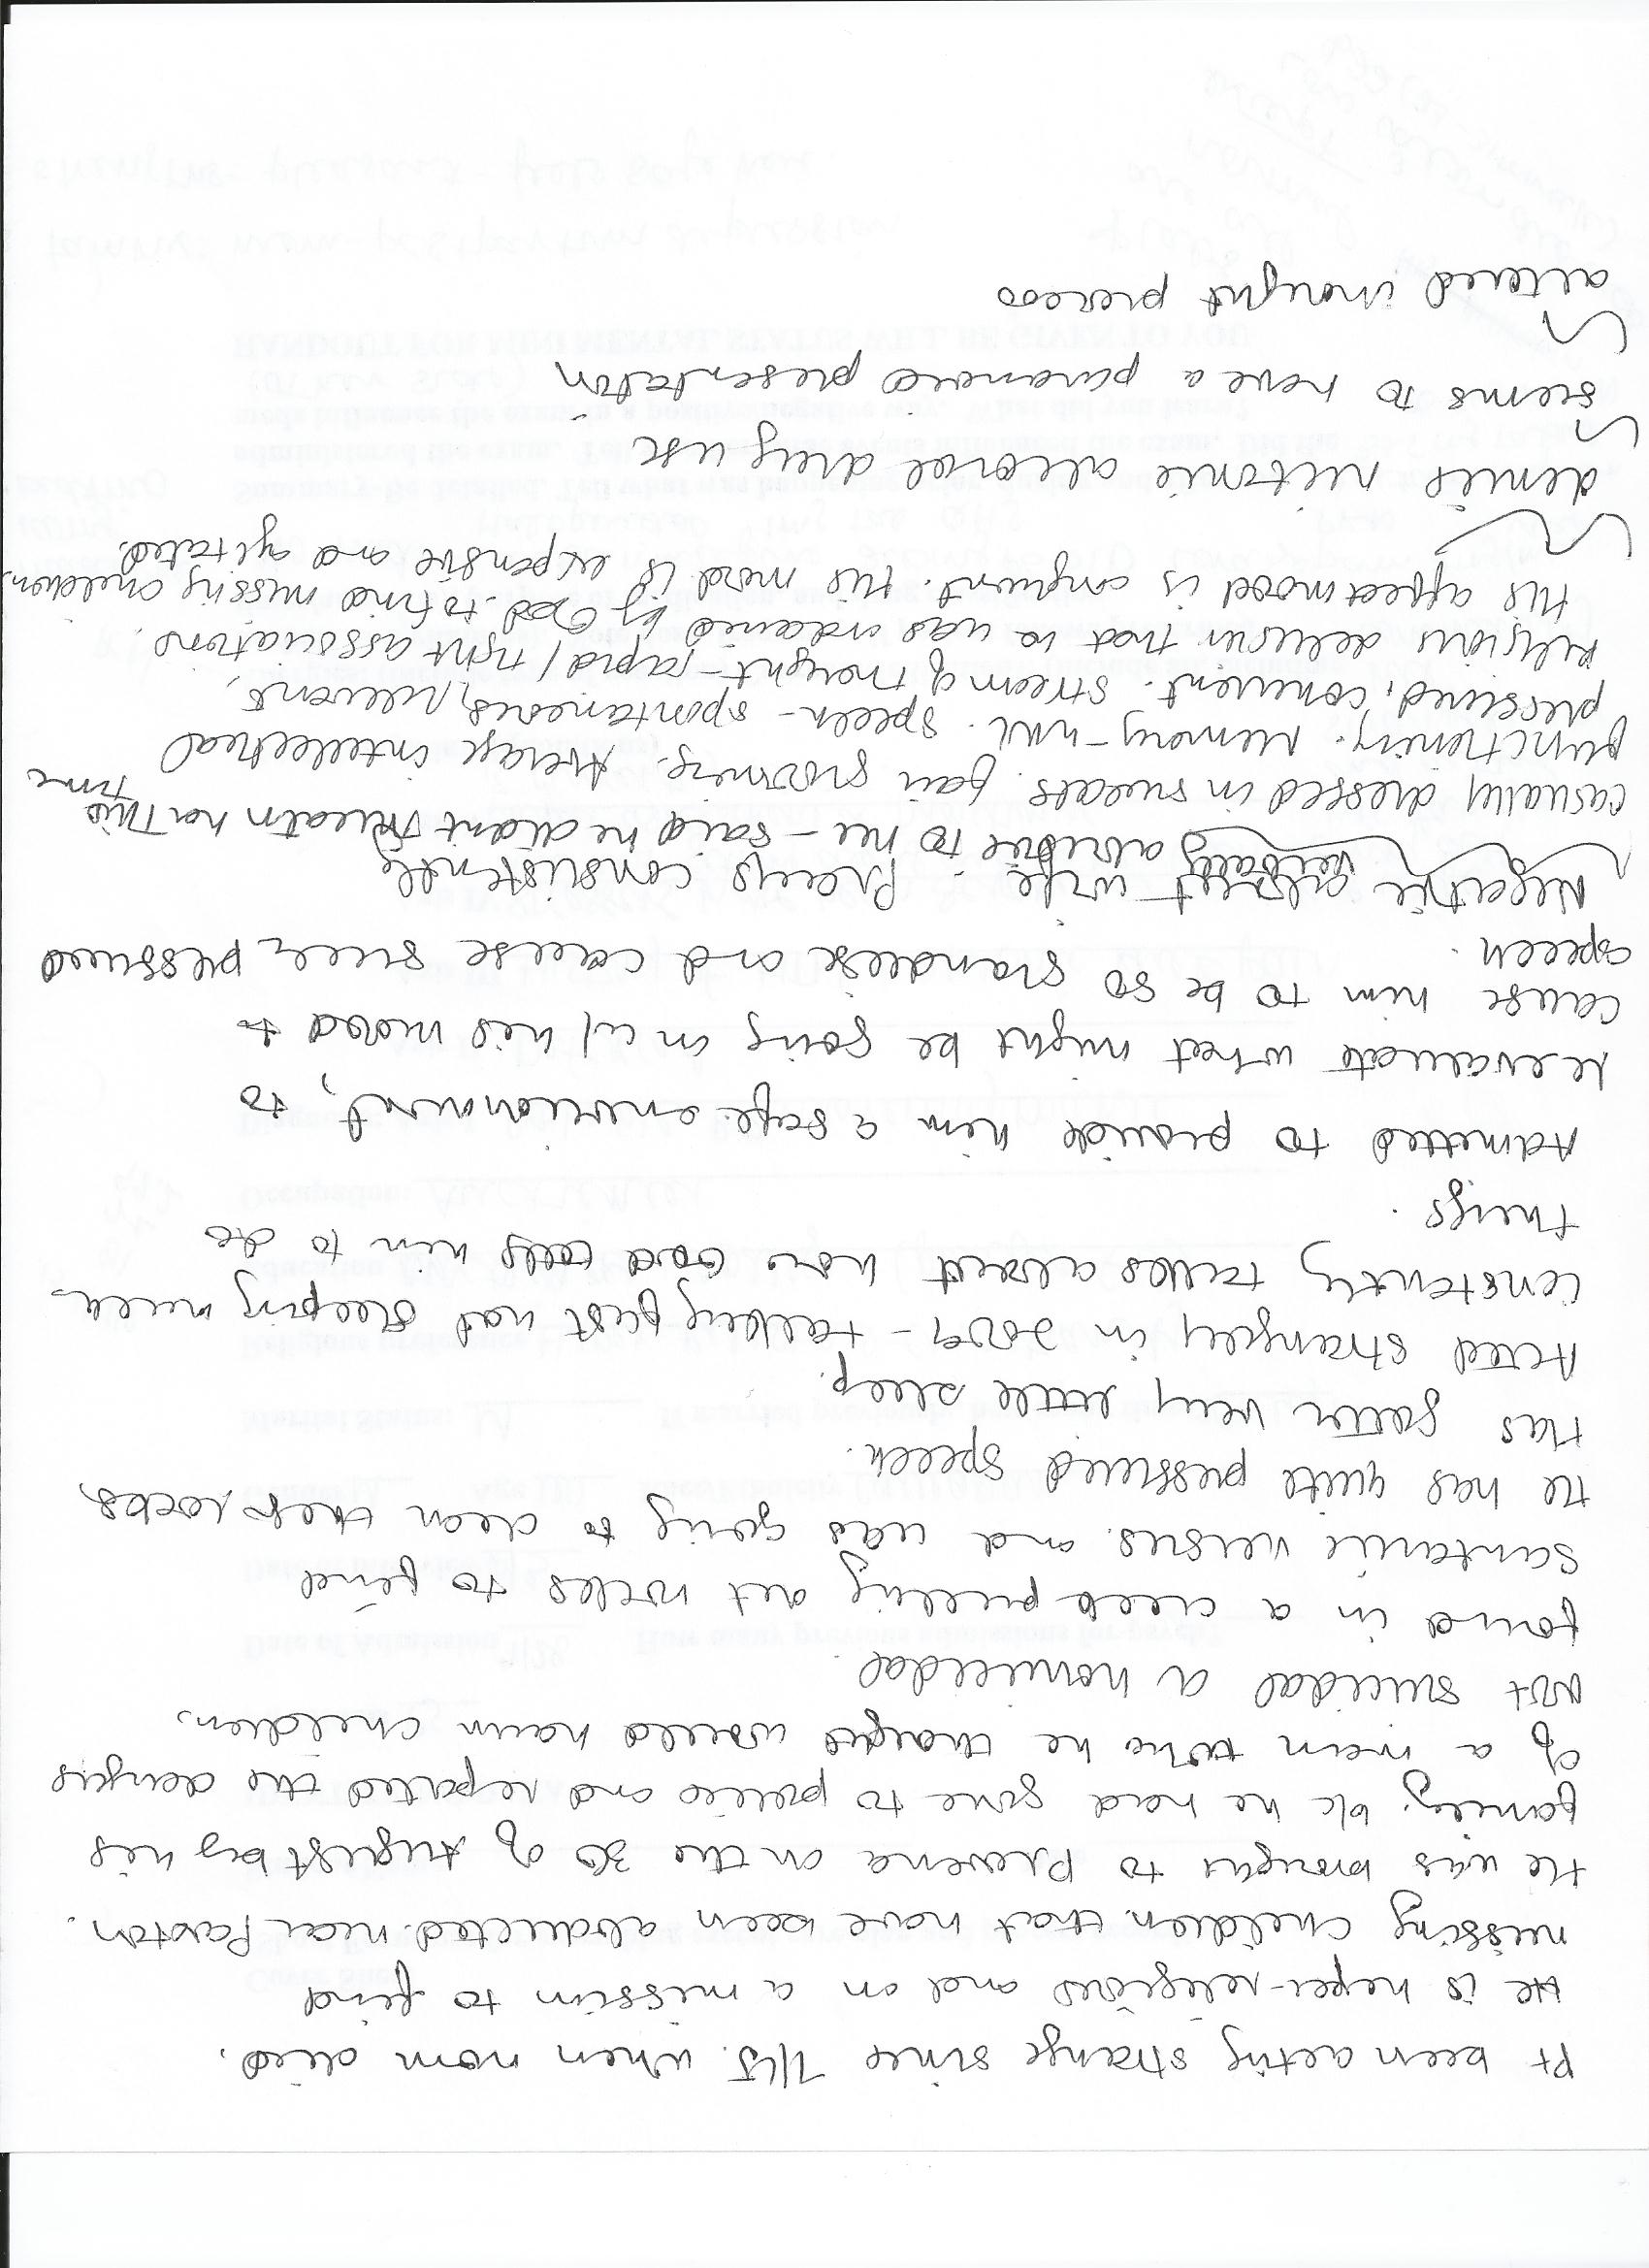 Pt been acting strange since 7/15. when mom died.
He is hyper-religious and on a mission to find
missing children that have been abducted near Paxton.
He was brought to Provena on the 30 of August by his
family b/c he had gone to police and reported the
of a man who he thought would harm children.
not suicidal or homicidal
found in a creek pulling out rocks to find
Santanic verses and was going to clean the rocks.
He has quite pressured speech.
Has gotten very little sleep.
Acted strangely in 2009 - talking fast not sleeping much
constently talks about how God tells him to do
things.
Admitted to provide him a safe environment, to
revaluate what might be going on w/ his mood to
cause him to be so grandiose and cause such pressured
speech.
Negative about wife - Plays
verbally abusive to her - said he didnt threaten her this time
casually dressed in sweats. fair grooming. Average intellectual
functioning. Memory - WNL. Speech - spontaneous, relevent,
pressured, coherent. Stream of thought - rapid / tight associations,
religious delusion that is was ordained by God to find missing children.
His affect mood is congruent. His mood is expansive and agitated.
denies nicotine alcohol drug use
seems to have a paranoid presentation
altered thought process